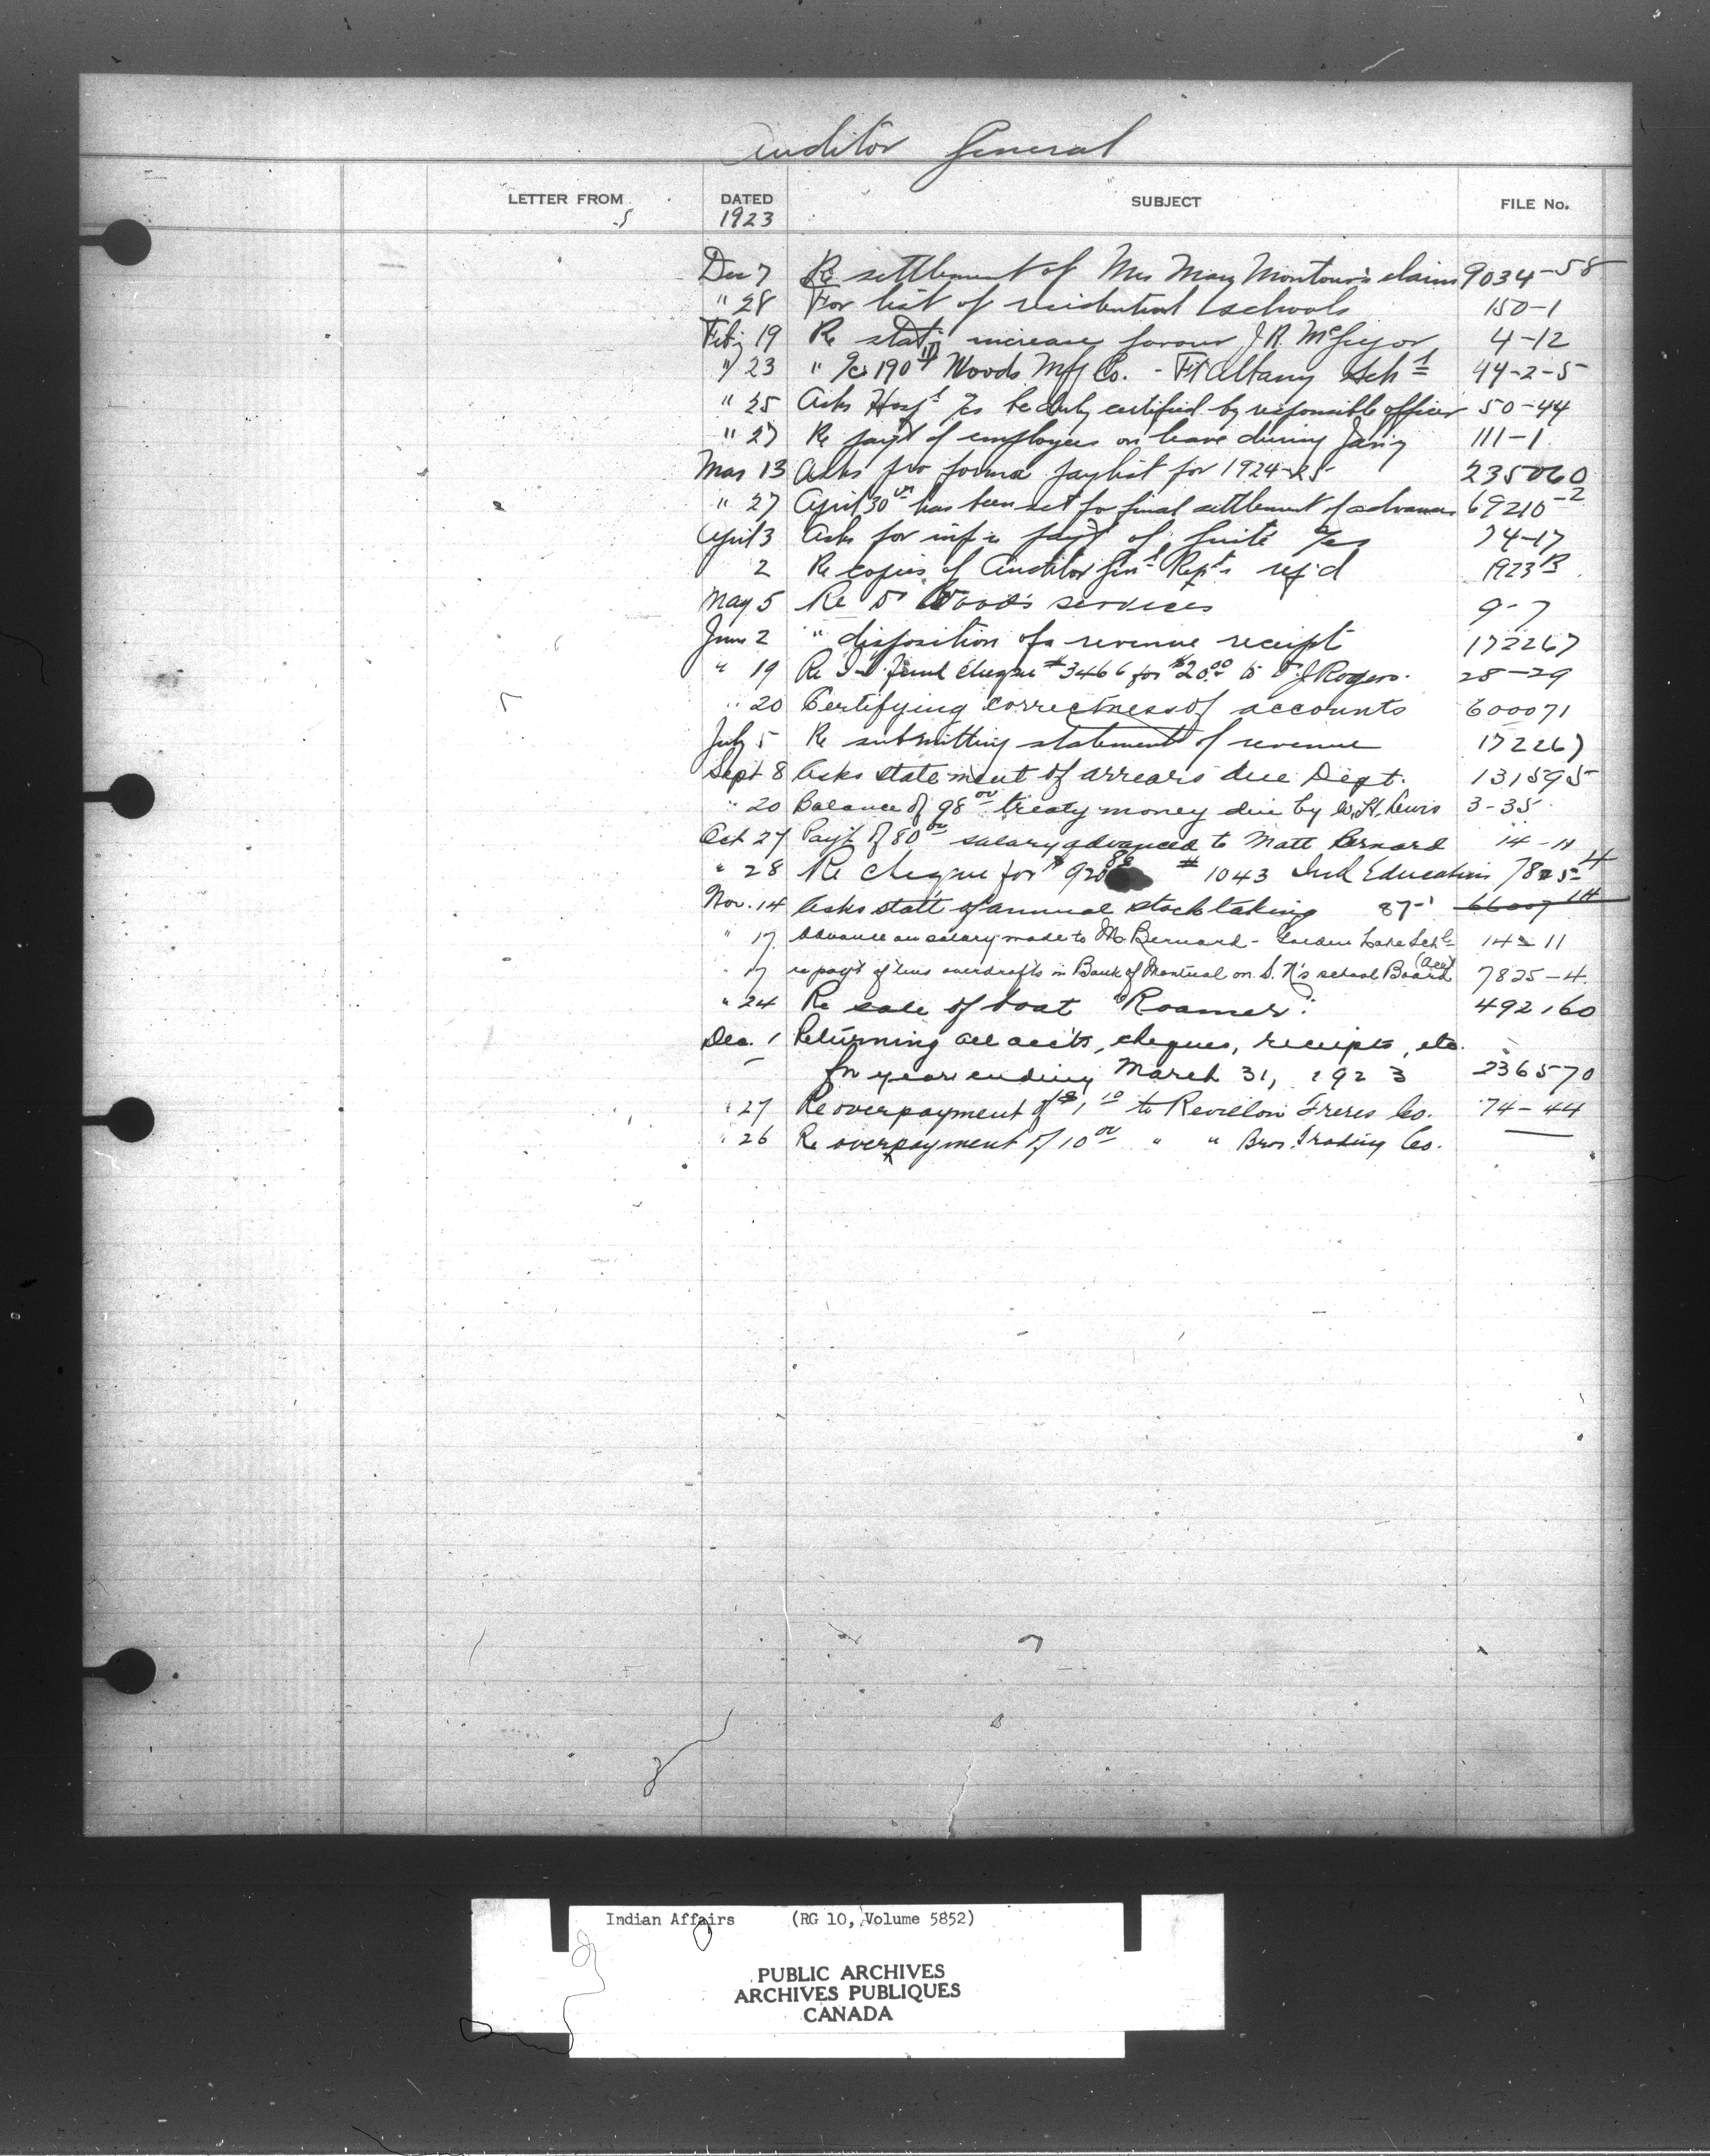 Auditor General
LETTER FROM DATED SUBJECT FILE No.
1923
Dec 7 Re settlement of Mrs Mary Montour's claim 9034-58
" 28 For list of residential schools 150-1
Feby 19 Re staty increase favour J.R. McGregor 4-12
" 23 " a/c 190 Woods Mfg Co. - Ft Albany Schl 44-2-5
" 25 Asks Hospl a/cs be duly certified by responsible officer 50-44
" 27 Re payt of employees on leave during Jany 111-1
Mar 13 Asks pro forma paylist for 1924-25 235060
" 27 April 30th has been set for final settlement of advances 69210-2
April 3 Asks for inf re payt of a/cs 74-17
2 Re copies of Auditor Genl Repts req'd 1923 B
May 5 Re Dr Wood's services 9-7
June 2 " disposition of a revenue receipt 172267
" 19 Re Fund Cheque #3466 for $20.00 to J Rogers. 28-29
" 20 Certifying correctness of accounts 600071
July 5 Re submitting statement of revenue 172267
Sept 8 Asks statement of arrears due Dept. 131595
" 20 Balance of 98 00 treaty money due by W.H. Lewis 3-35
Oct 27 Payt of 80 00 salary advanced to Matt Bernard 14-11
" 28 Re cheque for $920 88 # 1043 Ind Education 7825-4
Nov. 14 Asks statt of annual stocktaking 87-1
" 17 Advance on salary made to M. Bernard - Golden Lake Schl 14-11
" 17 re payt of two overdrafts in Bank of Montreal on S. N's school Board (Acct) 7825-4.
" 24 Re sale of boat "Roamer". 492,160
Dec. 1 Returning all accts, cheques, receipts, etc.
for year ending March 31, 1923 236570
" 27 Re overpayment of $1 10 to Revillon Freres Co. 74-44
" 26 Re overpayment of 10 00 " " Bros. Trading Co. —
Indian Affairs (RG 10, Volume 5852)
PUBLIC ARCHIVES
ARCHIVES PUBLIQUES
CANADA